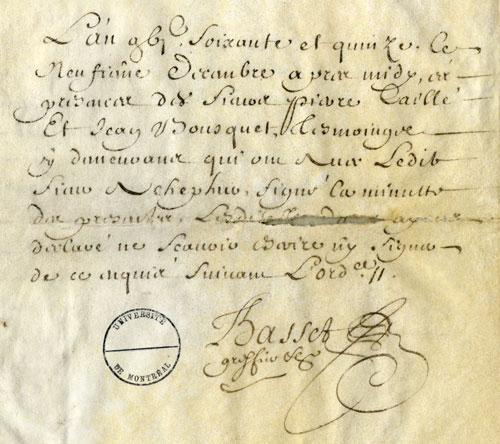 L'an gbjc. Soixante et quinze. Le
Neufiême Decembre apres midy, en
presence des Sieurs pierre Caillé
Et Jean Bousquet, tesmoings
y demeurans qui ont avec Ledit
Sieur signé la minutte
des presentes.
declaré ne scavoir Escrire ny signer
de ce enquis suivant L'ordce. //.
Basset
greffier
UNIVERSITÉ
DE MONTRÉAL